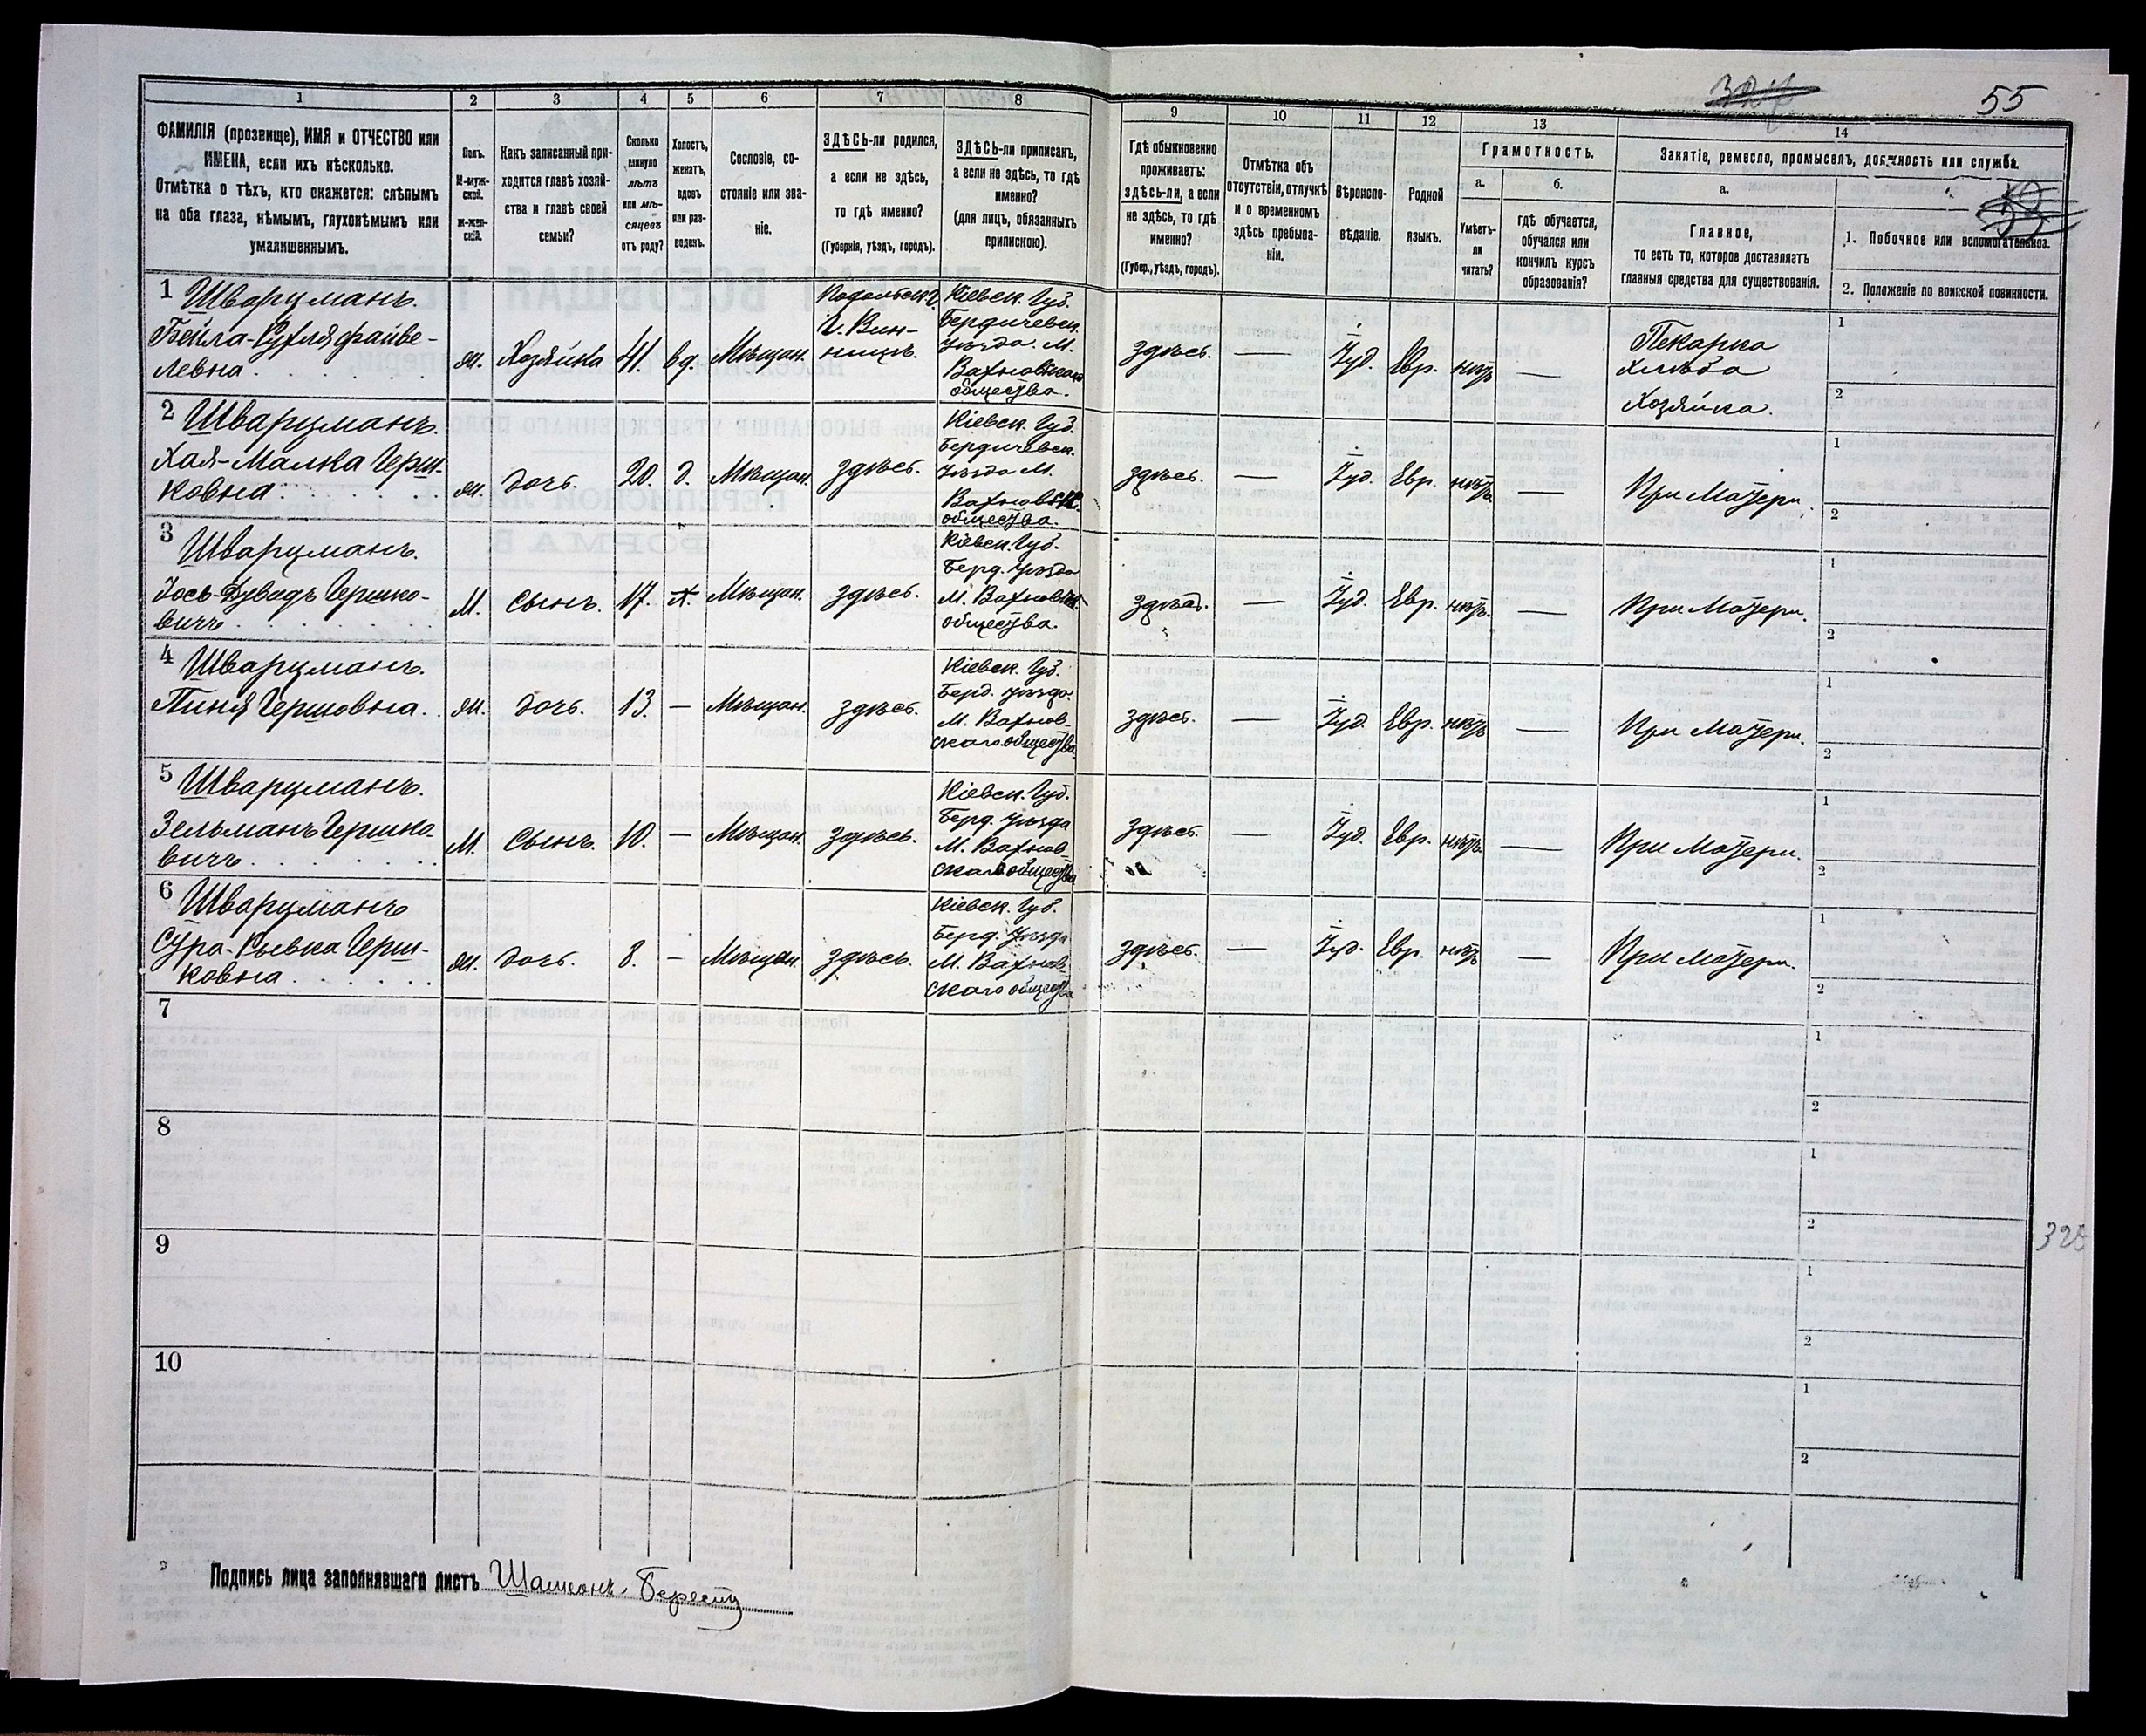 327
55
1
2
3
4
5
6
7
8
9
10
11
12
13
14
ФАМИЛІЯ (прозвище), ИМЯ и ОТЧЕСТВО или
ИМЕНА, если ихъ нѣсколько.
Отмѣтка о тѣхъ, кто окажется: слѣпымъ
на оба глаза, нѣмымъ, глухонѣмымъ или
умалишеннымъ.
Полъ.
М-муж-
ской.
ж-жен-
скій.
Какъ записанный при-
ходится главѣ хозяй-
ства и главѣ своей
семьи?
Сколько
минуло
лѣтъ
или мѣ-
сяцевъ
отъ роду?
Холостъ,
женатъ,
вдовъ
или раз-
веденъ.
Сословіе, со-
стояніе или зва-
ніе.
ЗДѢСЬ-ли родился,
а если не здѣсь,
то гдѣ именно?
(Губернія, уѣздъ, городъ).
ЗДѢСЬ-ли приписанъ,
а если не здѣсь, то гдѣ
именно?
(для лицъ, обязанныхъ
припискою).
Гдѣ обыкновенно
проживаетъ:
здѣсь-ли, а если
не здѣсь, то гдѣ
именно?
(Губер., уѣздъ, городъ).
Отмѣтка объ
отсутствіи, отлучкѣ
и о временномъ
здѣсь пребыва-
ніи.
Вѣроиспо-
вѣданіе.
Родной
языкъ.
Грамотность.
а.
Умѣетъ-
ли
читать?
б.
гдѣ обучается,
обучался или
кончилъ курсъ
образованія?
Занятіе, ремесло, промыселъ, должность или служба.
а.
Главное,
то есть то, которое доставляетъ
главныя средства для существованія.
1. Побочное или вспомогательное.
2. Положеніе по воинской повинности.
1 Шварцманъ.
Бейла-Рухля Файве-
левна.
ж. Хозяйка 41. вд. Мѣщан.
Подольск. г.
г. Вин-
ницѣ.
Кіевск. Губ.
Бердичевск.
Уѣзда. М.
Вахновскаго
общества.
здѣсь. — Іуд. Евр. нѣтъ —
Пекарка
Хлѣба
Хозяйка.
1
2
2 Шварцманъ.
Хая-Малка Герш-
ковна
ж. дочь. 20. д. Мѣщан. здѣсь.
Кіевск. Губ.
Бердичевск.
Уѣзда М.
Вахновск.
общества.
здѣсь. — Іуд. Евр. нѣтъ — При Матери.
1
2
3 Шварцманъ.
Іось-Дувидъ Гершко-
вичъ
М. сынъ. 17. х. Мѣщан. здѣсь.
Кіевск. Губ.
Берд. Уѣзда
М. Вахновск.
общества.
здѣсь. — Іуд. Евр. нѣтъ. — При Матери.
1
2
4 Шварцманъ.
Пиня Гершовна.
ж. дочь. 13. — Мѣщан. здѣсь.
Кіевск. Губ.
Берд. уѣзда.
М. Вахнов-
скаго общества
здѣсь. — Іуд. Евр. нѣтъ — При Матери.
1
2
5 Шварцманъ.
Зельманъ Гершко
вичъ.
М. Сынъ. 10. — Мѣщан. здѣсь.
Кіевск. Губ.
Берд. Уѣзда
М. Вахнов-
скаго общества
здѣсь. — Іуд. Евр. нѣтъ. — При Матери.
1
2
6 Шварцманъ
Сура-Рывка Герш-
ковна
ж. дочь. 8. — Мѣщан. здѣсь.
Кіевск. Губ.
Берд. Уѣзда
М. Вахнов-
скаго общества
здѣсь. — Іуд. Евр. нѣтъ — При Матери.
1
2
7
1
2
8
1
2
9
1
2
10
1
2
325
Подпись лица заполнявшаго листъ